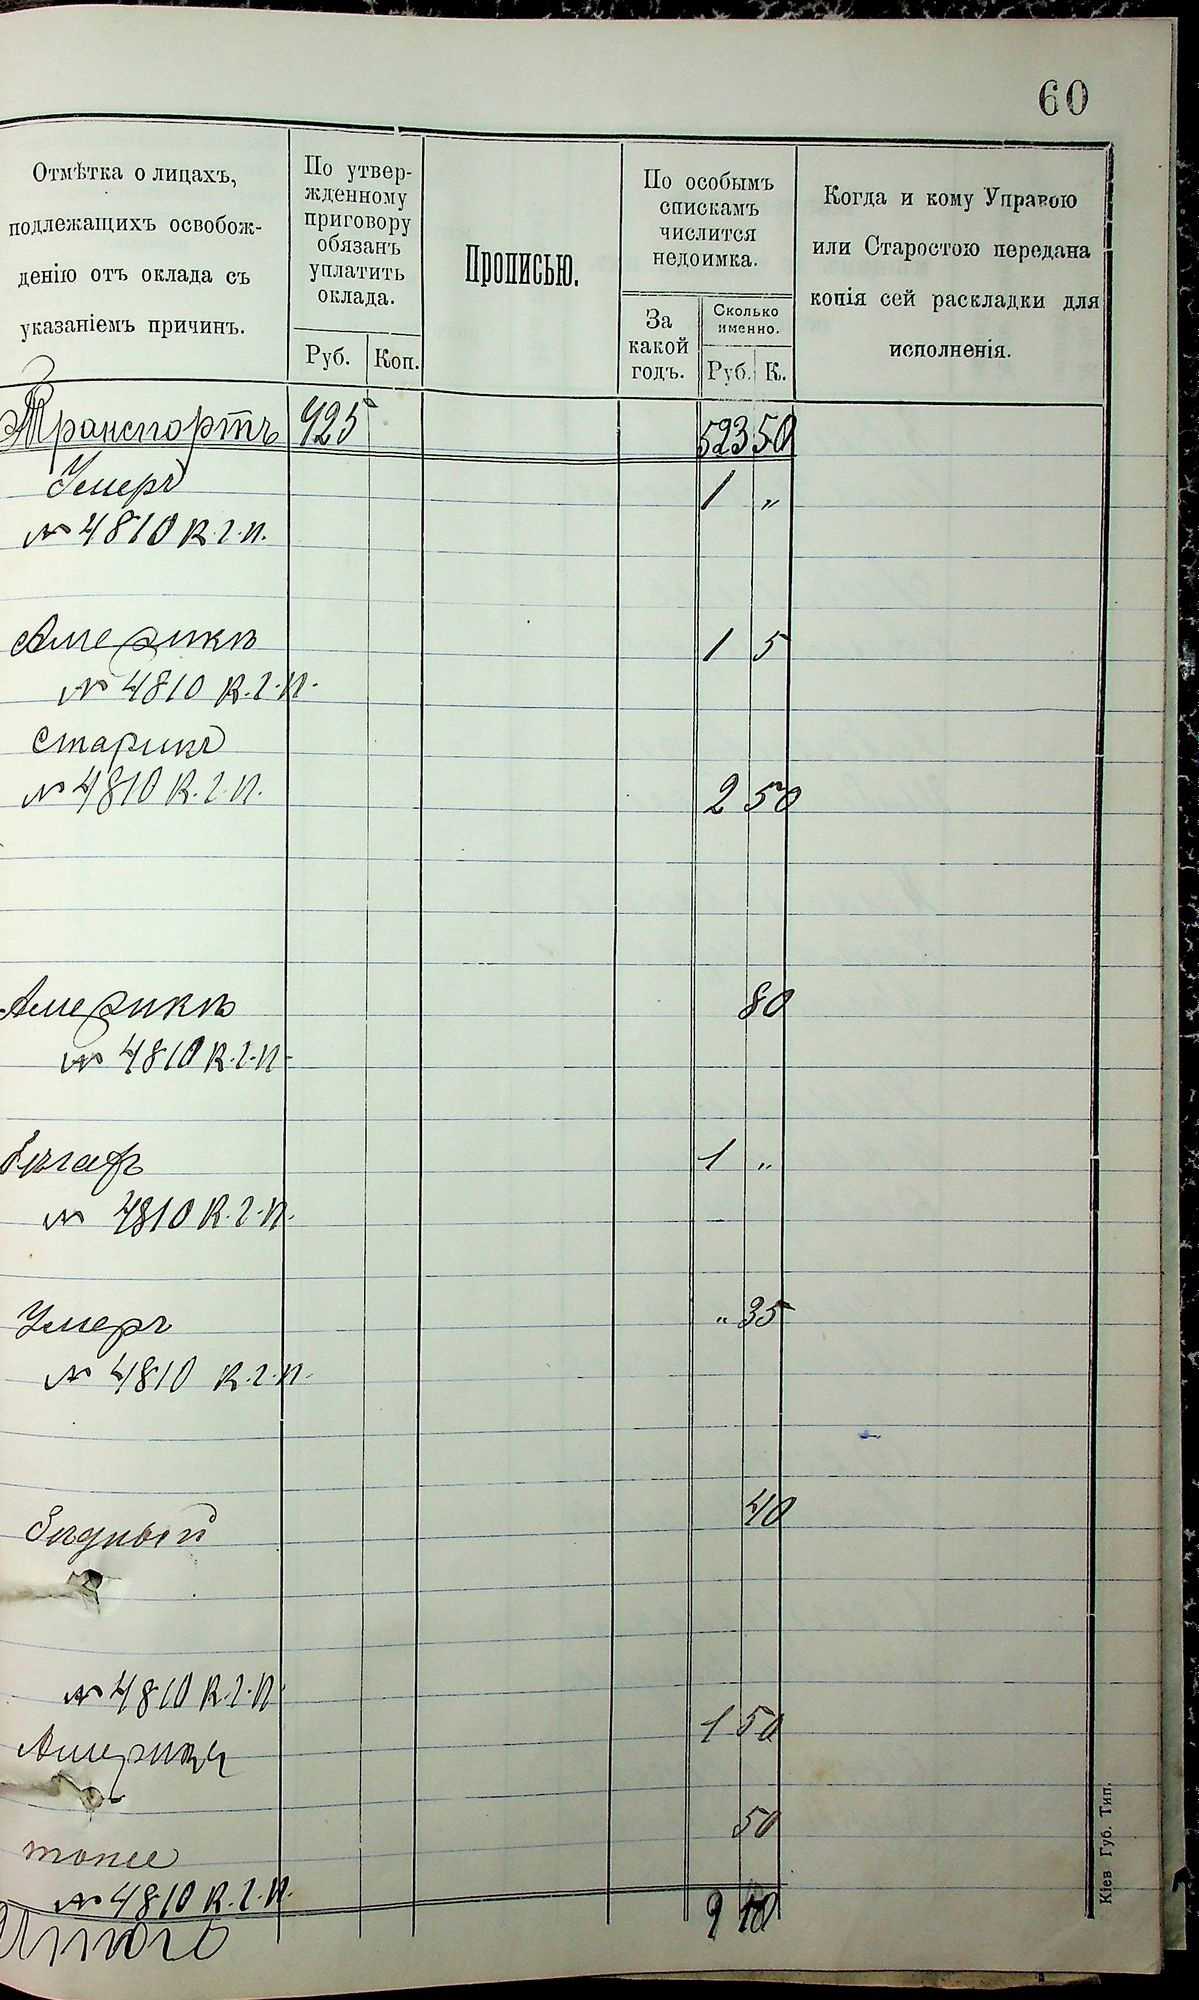 60
Отмѣтка о лицахъ,
подлежащихъ освобож-
денію отъ оклада съ
указаніемъ причинъ.
По утвер-
жденному
приговору
обязанъ
уплатить
оклада.
Руб. Коп.
Прописью.
По особымъ
спискамъ
числится
недоимка.
За
какой
годъ.
Сколько
именно.
Руб. К.
Когда и кому Управою
или Старостою передана
копія сей раскладки для
исполненія.
Транспортъ 925 523 50
Умеръ 1 „
№ 4810 К.г.п.
Америкѣ 1 5
№ 4810 К.г.п.
Старикъ
№ 4810 К.г.п. 2 50
Америкѣ 80
№ 4810 К.г.п.
1 „
№ 4810 К.г.п.
Умеръ „ 35
№ 4810 К.г.п.
Бѣдный 40
№ 4810 К.г.п.
1 50
Америкѣ
50
тоже
№ 4810 К.г.п.
Итого 9 10
Кіев Губ. Тип.